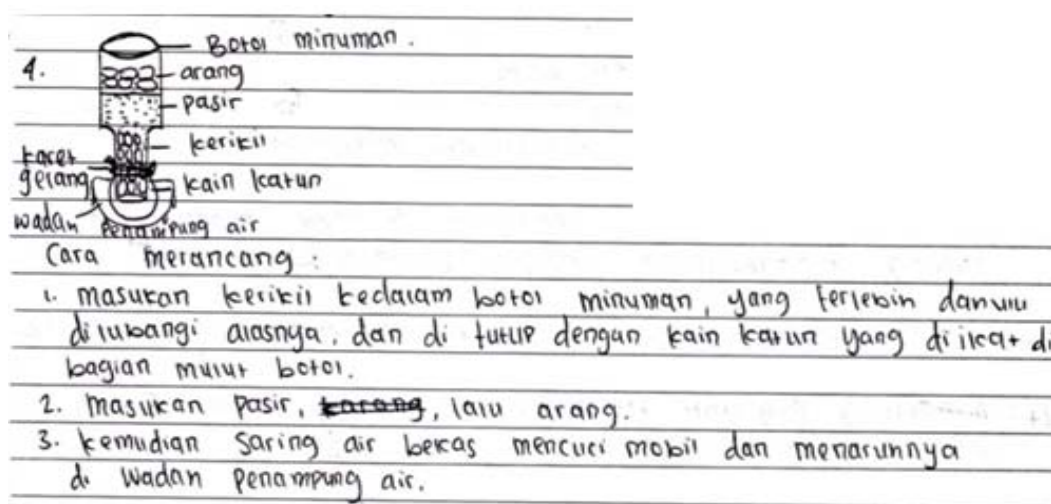 Botol minuman.
4.
arang
pasir
kerikil
karet
gelang
kain katun
wadah penampung air
Cara merancang :
1. masukan kerikil kedalam botol minuman, yang terlebih dahulu
dilubangi alasnya, dan di tutup dengan kain katun yang di ikat di
bagian mulut botol.
2. masukan pasir, karang, lalu arang.
3. kemudian saring air bekas mencuci mobil dan menaruhnya
di wadah penampung air.